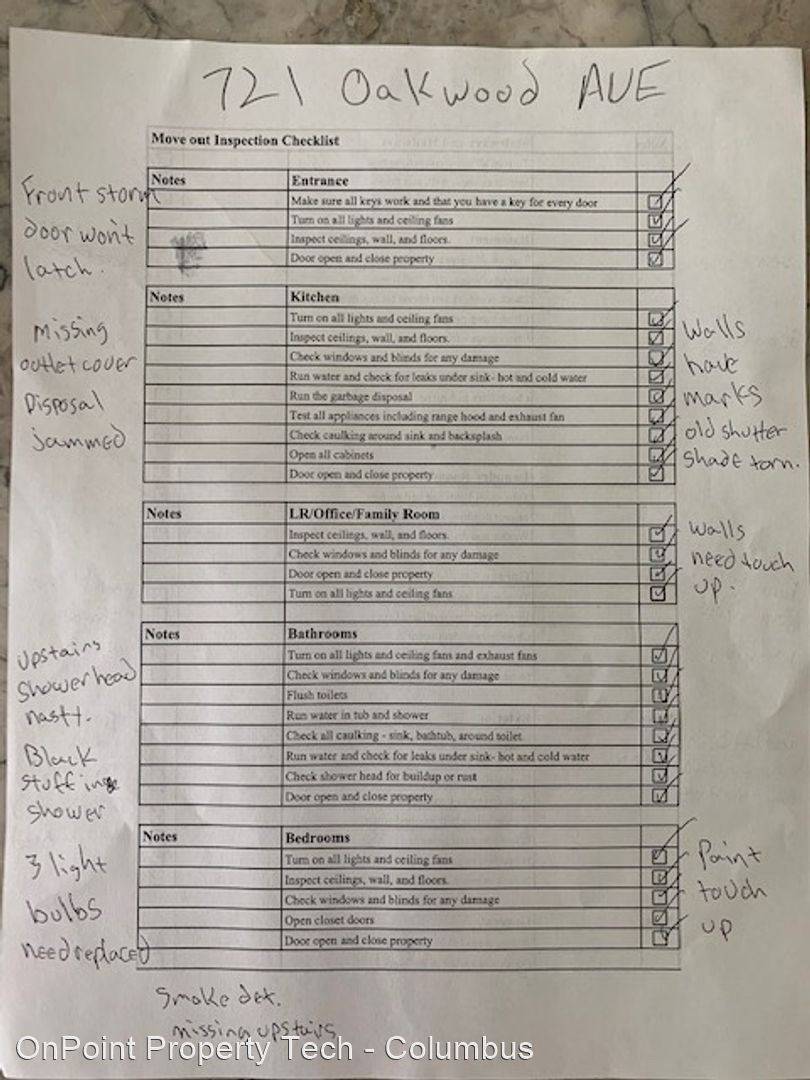 721 Oakwood AVE
Move out Inspection Checklist
Notes Entrance
Make sure all keys work and that you have a key for every door
Turn on all lights and ceiling fans
Inspect ceilings, wall, and floors.
Door open and close property
Front storm
door won't
latch.
Notes Kitchen
Turn on all lights and ceiling fans
Inspect ceilings, wall, and floors.
Check windows and blinds for any damage
Run water and check for leaks under sink- hot and cold water
Run the garbage disposal
Test all appliances including range hood and exhaust fan
Check caulking around sink and backsplash
Open all cabinets
Door open and close property
Missing
outlet cover
Disposal
jammed
Walls
have
marks
old shutter
shade torn.
Notes LR/Office/Family Room
Inspect ceilings, wall, and floors.
Check windows and blinds for any damage
Door open and close property
Turn on all lights and ceiling fans
Walls
need touch
up.
Notes Bathrooms
Turn on all lights and ceiling fans and exhaust fans
Check windows and blinds for any damage
Flush toilets
Run water in tub and shower
Check all caulking - sink, bathtub, around toilet
Run water and check for leaks under sink- hot and cold water
Check shower head for buildup or rust
Door open and close property
upstairs
shower head
nasty.
Black
stuff in
shower
Notes Bedrooms
Turn on all lights and ceiling fans
Inspect ceilings, wall, and floors.
Check windows and blinds for any damage
Open closet doors
Door open and close property
3 light
bulbs
need replaced
Paint
touch
up
Smoke det.
missing upstairs
OnPoint Property Tech - Columbus